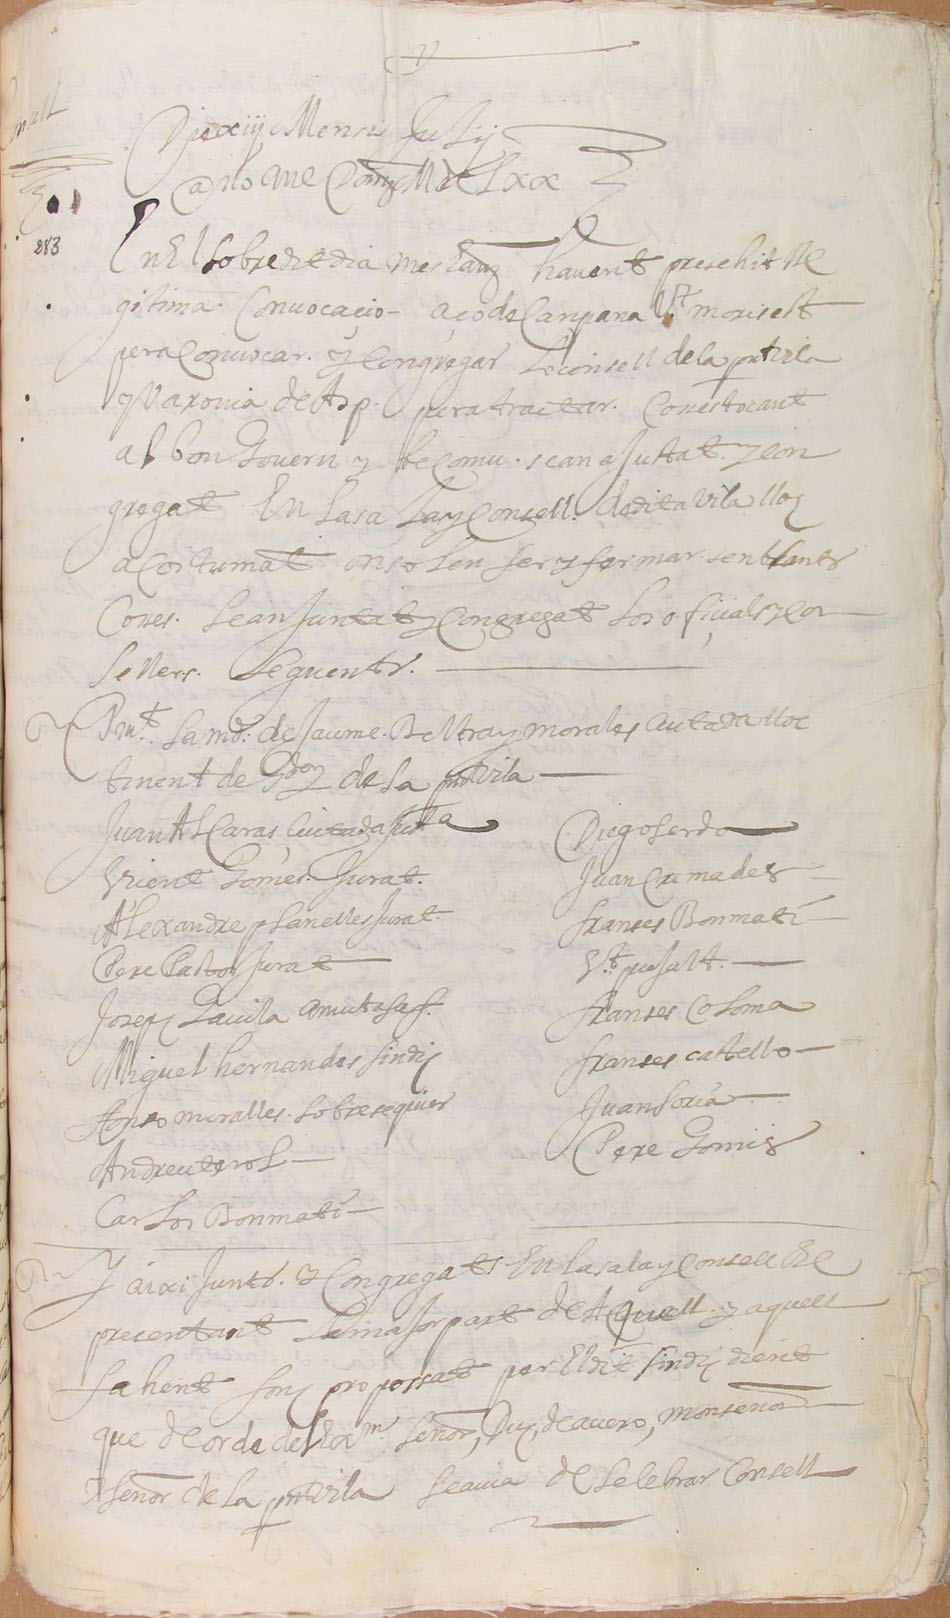 Consell
Die xiij Mensis Julij
anno Me Domj MDCLxx
283
En El sobredit dia mes E any havent presehit lle
gitima Convocacio açode Canpana Vt moris est
pera Convocar y Congregar lo consell de la pnt vila
y Varonia de Asp. pera tractar Coses tocant
al bon Govern y be comu sean ajustat y con
gregat En la sala y Consell de dita vila lloch
acostumat on solen fer y fermar senblants
Coses. sean Juntat y Congregat los oficials y con
sellers seguents.
Pmt. la md. de Jaume Beltray morales ciutada lloc
tinent de Gdor de la pnt Vila
Juan Alcaras Ciutada Justa
Vicent Gomes Jurat.
Alexandre planelles Jurat
Pere Pastor Jurat
Josep Davila amutasaf.
Miguel hernandes sindich
Anto miralles sobresequier
Andreu terol
Carlos Bonmati
Diego Serda
Juan Crimades
franses Bonmati
Vt. pujalt.
franses Coloma
franses castello
Juan Soria
Pere Gomis
Y aixi Junts y Congregats En la sala y Consell E Re
presentant la major part de Aquell y aquell
fahent fonch proposat per El dit sindich dient
que de orde del Exm señor, Duch de avero, monseñor
y señor de la pnt Vila seavia de selebrar Consell